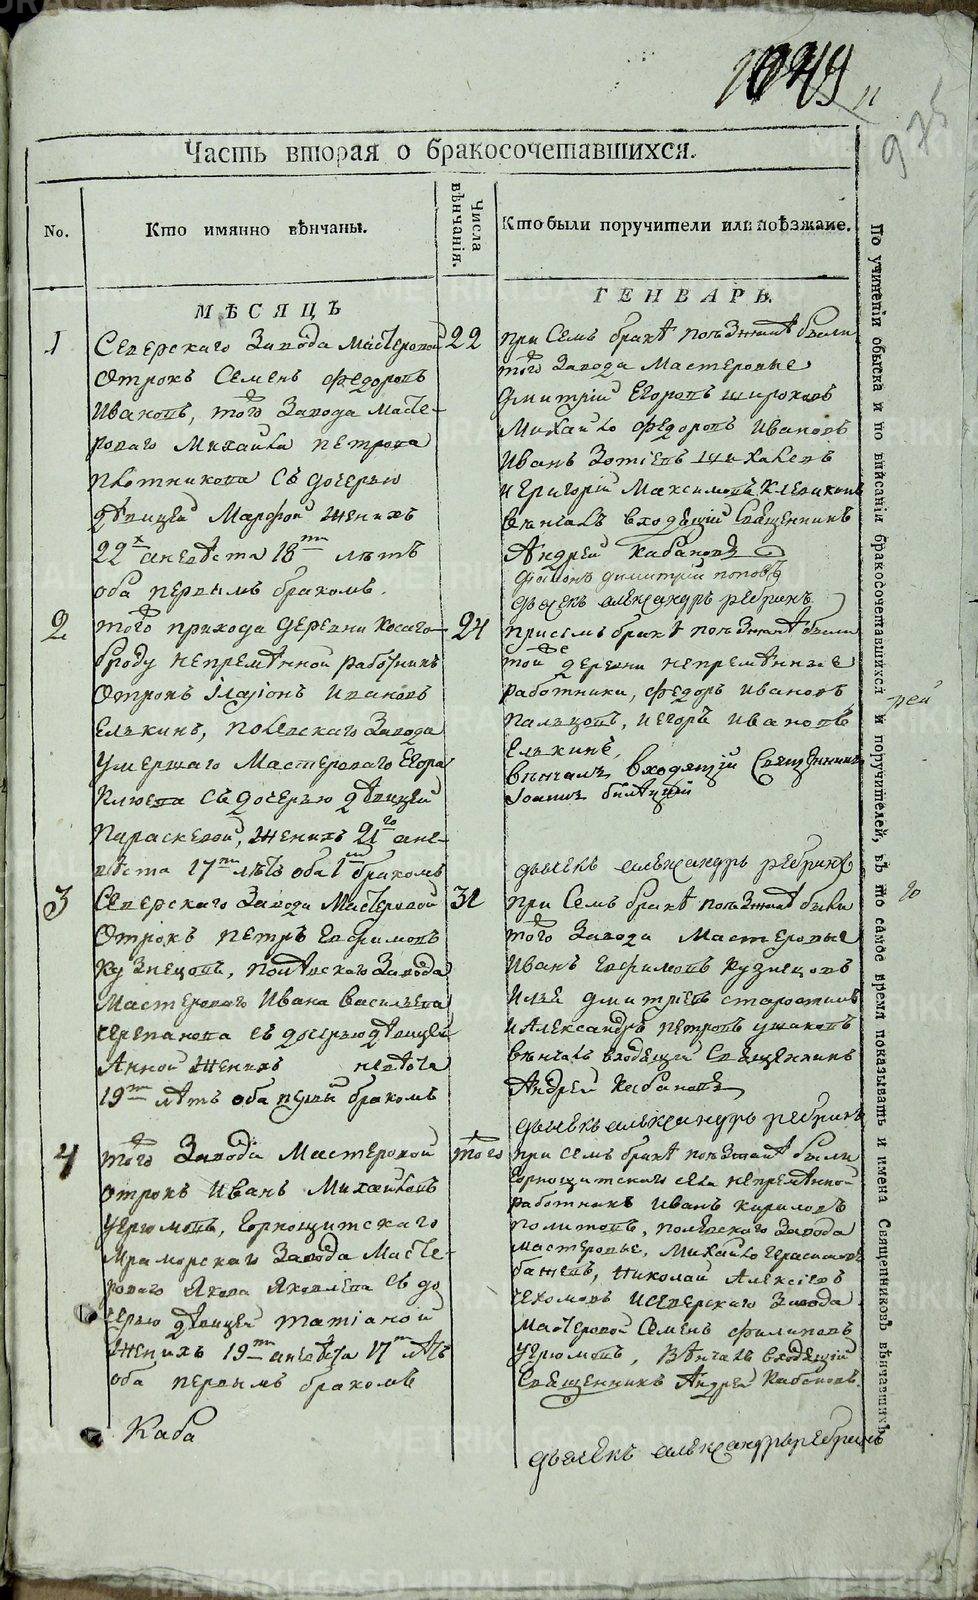 Часть вторая о бракосочетавшихся.
No.
Кто имянно вѣнчаны.
Числа вѣнчанія.
Кто были поручители или поѣзжане.
МѢСЯЦЪ
ГЕНВАРЬ.
1
Северскаго Завода Мастеровой
Отрокъ Семенъ Федоровъ
Ивановъ, тогожъ Завода Масте-
роваго Михайла Петрова
Плотникова съ дочерью
дѣвицей Марфой женихъ
22х а невѣста 18ти лѣтъ
оба первымъ бракомъ.
22
При Семъ бракѣ поѣзжанѣ были
тогожъ Завода Мастеровые
Дмитрий Егоровъ Широковъ
Михайло Федоровъ Ивановъ
Иванъ Зотіевъ
и Григорій Максимовъ
вѣнчалъ входящій Священникъ
Андрей Кабановъ
Димитрий Поповъ
дьячекъ александръ ребринъ
2
тогожъ прихода деревни Косаго-
броду непремѣнной работникъ
Отрокъ Іларіонъ Ивановъ
Елькинъ, Полевскаго Завода
умершаго Мастероваго Егора
съ дочерью дѣвицей
Параскевой, женихъ 21го а не-
вѣста 17ти лѣтъ оба 1мъ бракомъ
24
При семъ бракѣ поѣзжанѣ были
тойже деревни непремѣнные
работники, Федоръ Ивановъ
Пальцовъ, и Егоръ Ивановъ
Елькинъ,
вѣнчалъ входящій Священникъ
Іоаннъ
дьячекъ александръ ребринъ
3
Северскаго Завода Мастеровой
Отрокъ Петръ Евфимовъ
Кузнецовъ, Полевскаго Завода
Мастероваго Ивана Васильева
Черепанова съ дочерью дѣвицей
Анной женихъ невѣста
19ти лѣтъ оба первымъ бракомъ
31
При Семъ бракѣ поѣзжанѣ были
тогожъ Завода Мастеровые
Иванъ Евфимовъ Кузнецовъ
Илья Дмитріевъ Старостинъ
и Александръ Петровъ Ушаковъ
вѣнчалъ входящій Священникъ
Андрей Кабановъ
дьячекъ александръ ребринъ
4
тогожъ Завода Мастеровой
Отрокъ Иванъ Михайловъ
Угрюмовъ, Горнощитскаго
Мраморскаго Завода Масте-
роваго Якова Яковлева съ до
черью дѣвицей Татіаной
женихъ 19ти а невѣста 17ти лѣтъ
оба первымъ бракомъ
тогожъ
При семъ бракѣ поѣзжанѣ были
Горнощитскаго села непремѣнной
работникъ Иванъ Кириловъ
Политовъ, Полевскаго Завода
мастеровые, Михайло Герасимовъ
Бажевъ, Николай Алексіевъ
и Северскаго Завода
Мастеровой Семенъ Филиповъ
Угрюмовъ, вѣнчалъ входящій
Священникъ Андрей Кабановъ
дьячекъ александръ ребринъ
Каба
По учиненіи обыска и по вписаніи бракосочетавшихся и поручителей, въ то самое время показывать и имена Священниковъ вѣнчавшихъ
рей
го